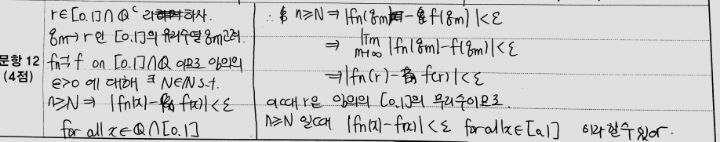 문항 12
(4점)
r∈[0.1]∩Q^c 라 하자.
q_m→r 인 [0.1]의 유리수열 q_m 고려.
f_n⇉f on [0.1]∩Q 이므로 임의의
ε>0 에 대해 ∃N∈ℕ s.t.
n≥N ⇒ |f_n(x)-f(x)|<ε
for all x∈Q∩[0.1]
∴ n≥N ⇒ |f_n(q_m)-f(q_m)|<ε
⇒ lim_{m→∞} |f_n(q_m)-f(q_m)|<ε
⇒ |f_n(r)-f(r)|<ε
이때 r은 임의의 [0.1]의 무리수이므로.
n≥N 일때 |f_n(x)-f(x)|<ε for all x∈[0,1] 이라 할수 있어.